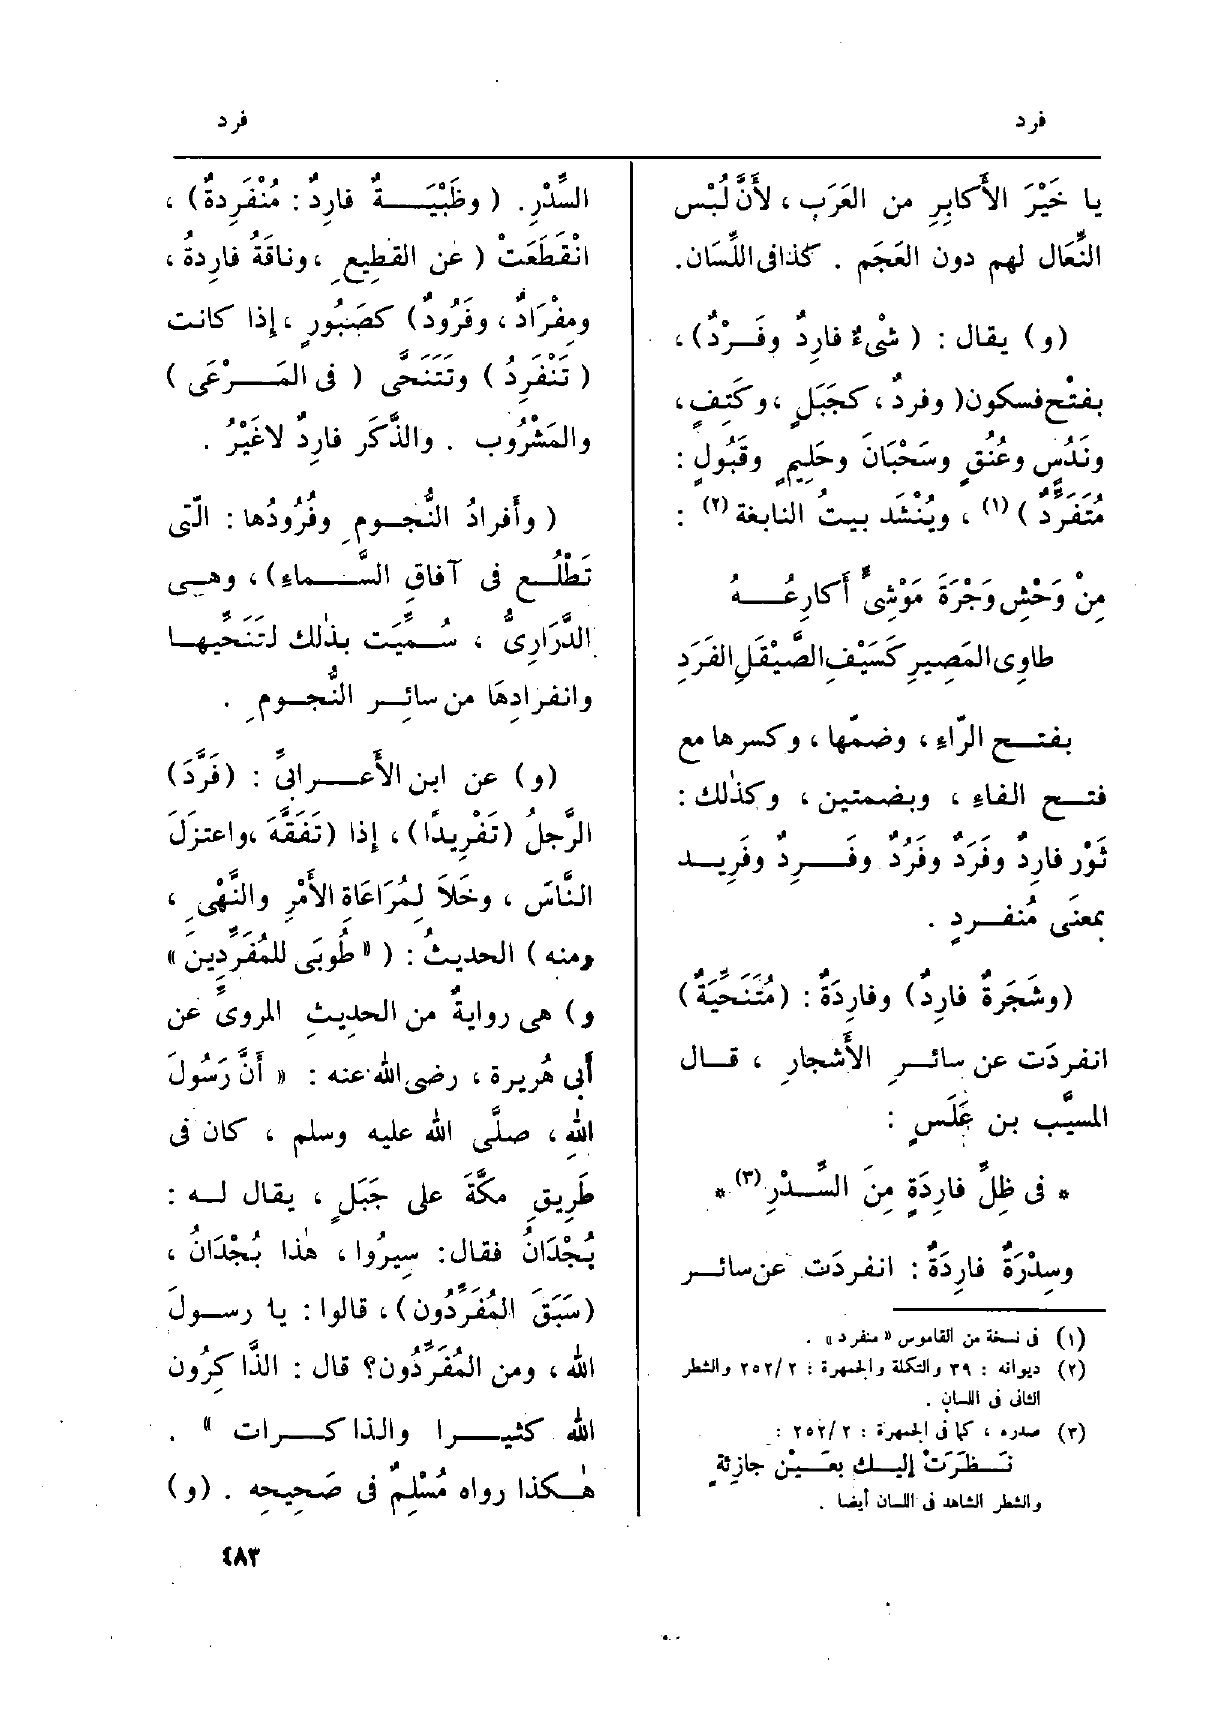 فرد
فرد
يا خَيْرَ الأَكابِرِ من العَرَب ، لأَنَّ لُبْس
النِّعَال لهم دون العَجَم . كذا فى اللِّسَان.
(و) يقال : ( شَىْءٌ فارِدٌ وفَرْدٌ) ،
بفتْح فسكون( وفردٌ ، كجَبَلٍ ، وكَتِفٍ ،
ونَدُسٍ وعُنُقٍ وسَحْبَانَ وحَلِيمٍ وقَبُولٍ :
مُتَفَرِّدٌ ) (١) ، ويُنْشَد بيتُ النابغة (٢) :
مِنْ وَحْشِ وَجْرَةَ مَوْشِىٍّ أَكارِعُهُ
طاوِى المَصِيرِ كَسَيْفِ الصَّيْقَلِ الفَرَدِ
بفتح الرّاءِ ، وضمّها ، وكسرها مع
فتح الفاءِ ، وبضمتين ، وكذٰلك :
ثَوْر فارِدٌ وفَرَدٌ وفَرُدٌ وفَرِدٌ وفَرِيد
بمعنَى مُنفرِدٍ .
(وشَجَرةٌ فارِدٌ) وفارِدَةٌ : (مُتَنَحِّيَةٌ)
انفردَت عن سائرِ الأَشجارِ ، قال
المسيَّب بن عَلَسٍ :
* فى ظِلِّ فارِدَةٍ مِنَ السِّدْرِ (٣) *
وسِدْرَةٌ فارِدَةٌ : انفردَت عن سائر
(١) فى نسخة من القاموس « منفرد » .
(٢) ديوانه : ٣٩ والتكلة والجمهرة : ٢٥٢/٢ والشطر
الثانى فى اللسان .
(٣) صدره ، كما فى الجمهرة : ٢٥٢/٢ :
نَظَرَتْ إليك بعَيْنِ جازِئةٍ
والشطر الشاهد فى اللسان أيضا .
السِّدْرِ. ( وظَبْيَةٌ فارِدٌ : مُنْفَرِدةٌ ) ،
انْقَطَعَتْ ( عن القَطِيعِ ، وناقَةٌ فارِدةٌ ،
ومِفْرَادٌ ، وفَرُودٌ) كصَبُورٍ ، إذا كانت
( تَنْفَرِدُ ) وتَتَنَحَّى ( فى المَرْعَى )
والمَشْروب . والذَّكَر فارِدٌ لاغَيْرُ .
( وأَفرادُ النُّجومِ وفُرُودُها : الّتى
تَطْلُع فى آفاقِ السَّماءِ) ، وهى
الدَّرَارِىُّ ، سُمِّيَت بذٰلك لتَنَحِّيها
وانفرادِهَا من سائرِ النُّجومِ .
(و) عن ابن الأَعرابىِّ : (فَرَّدَ)
الرَّجلُ (تَفْرِيدًا) ، إذا (تَفَقَّهَ ،واعتزَلَ
النَّاسَ ، وخَلاَ لِمُرَاعَاةِ الأَمْرِ والنَّهْىِ ،
ومنه ) الحديثُ : ( « طُوبَى للمُفَرِّدِينَ »
و) هى روايةٌ من الحديثِ المروىِّ عن
أَبى هُريرة ، رضى الله عنه : « أَنَّ رَسُولَ
اللهِ ، صلَّى الله عليه وسلم ، كان فى
طَرِيقِ مكَّةَ على جَبَلٍ ، يقال له :
بُجْدَانُ فقال: سِيرُوا ، هٰذا بُجْدَانُ ،
(سَبَقَ المُفَرِّدُون) ، قالوا : يا رسولَ
الله ، ومن المُفَرِّدُون؟ قال : الذَّاكِرُون
الله كثيرا والذاكرات » .
هٰكذا رواه مُسْلِمٌ فى صَحِيحِه . (و)
٤٨٣